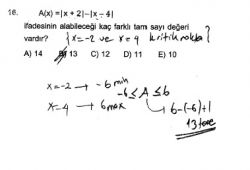 16. A(x)=|x + 2|-|x - 4|
ifadesinin alabileceği kaç farklı tam sayı değeri
vardır? { x=-2 ve x=4 kritik nokta }
A) 14 B) 13 C) 12 D) 11 E) 10
x=-2 → -6 min
-6≤A≤6
x=4 → 6 max
6-(-6)+1
13 tane